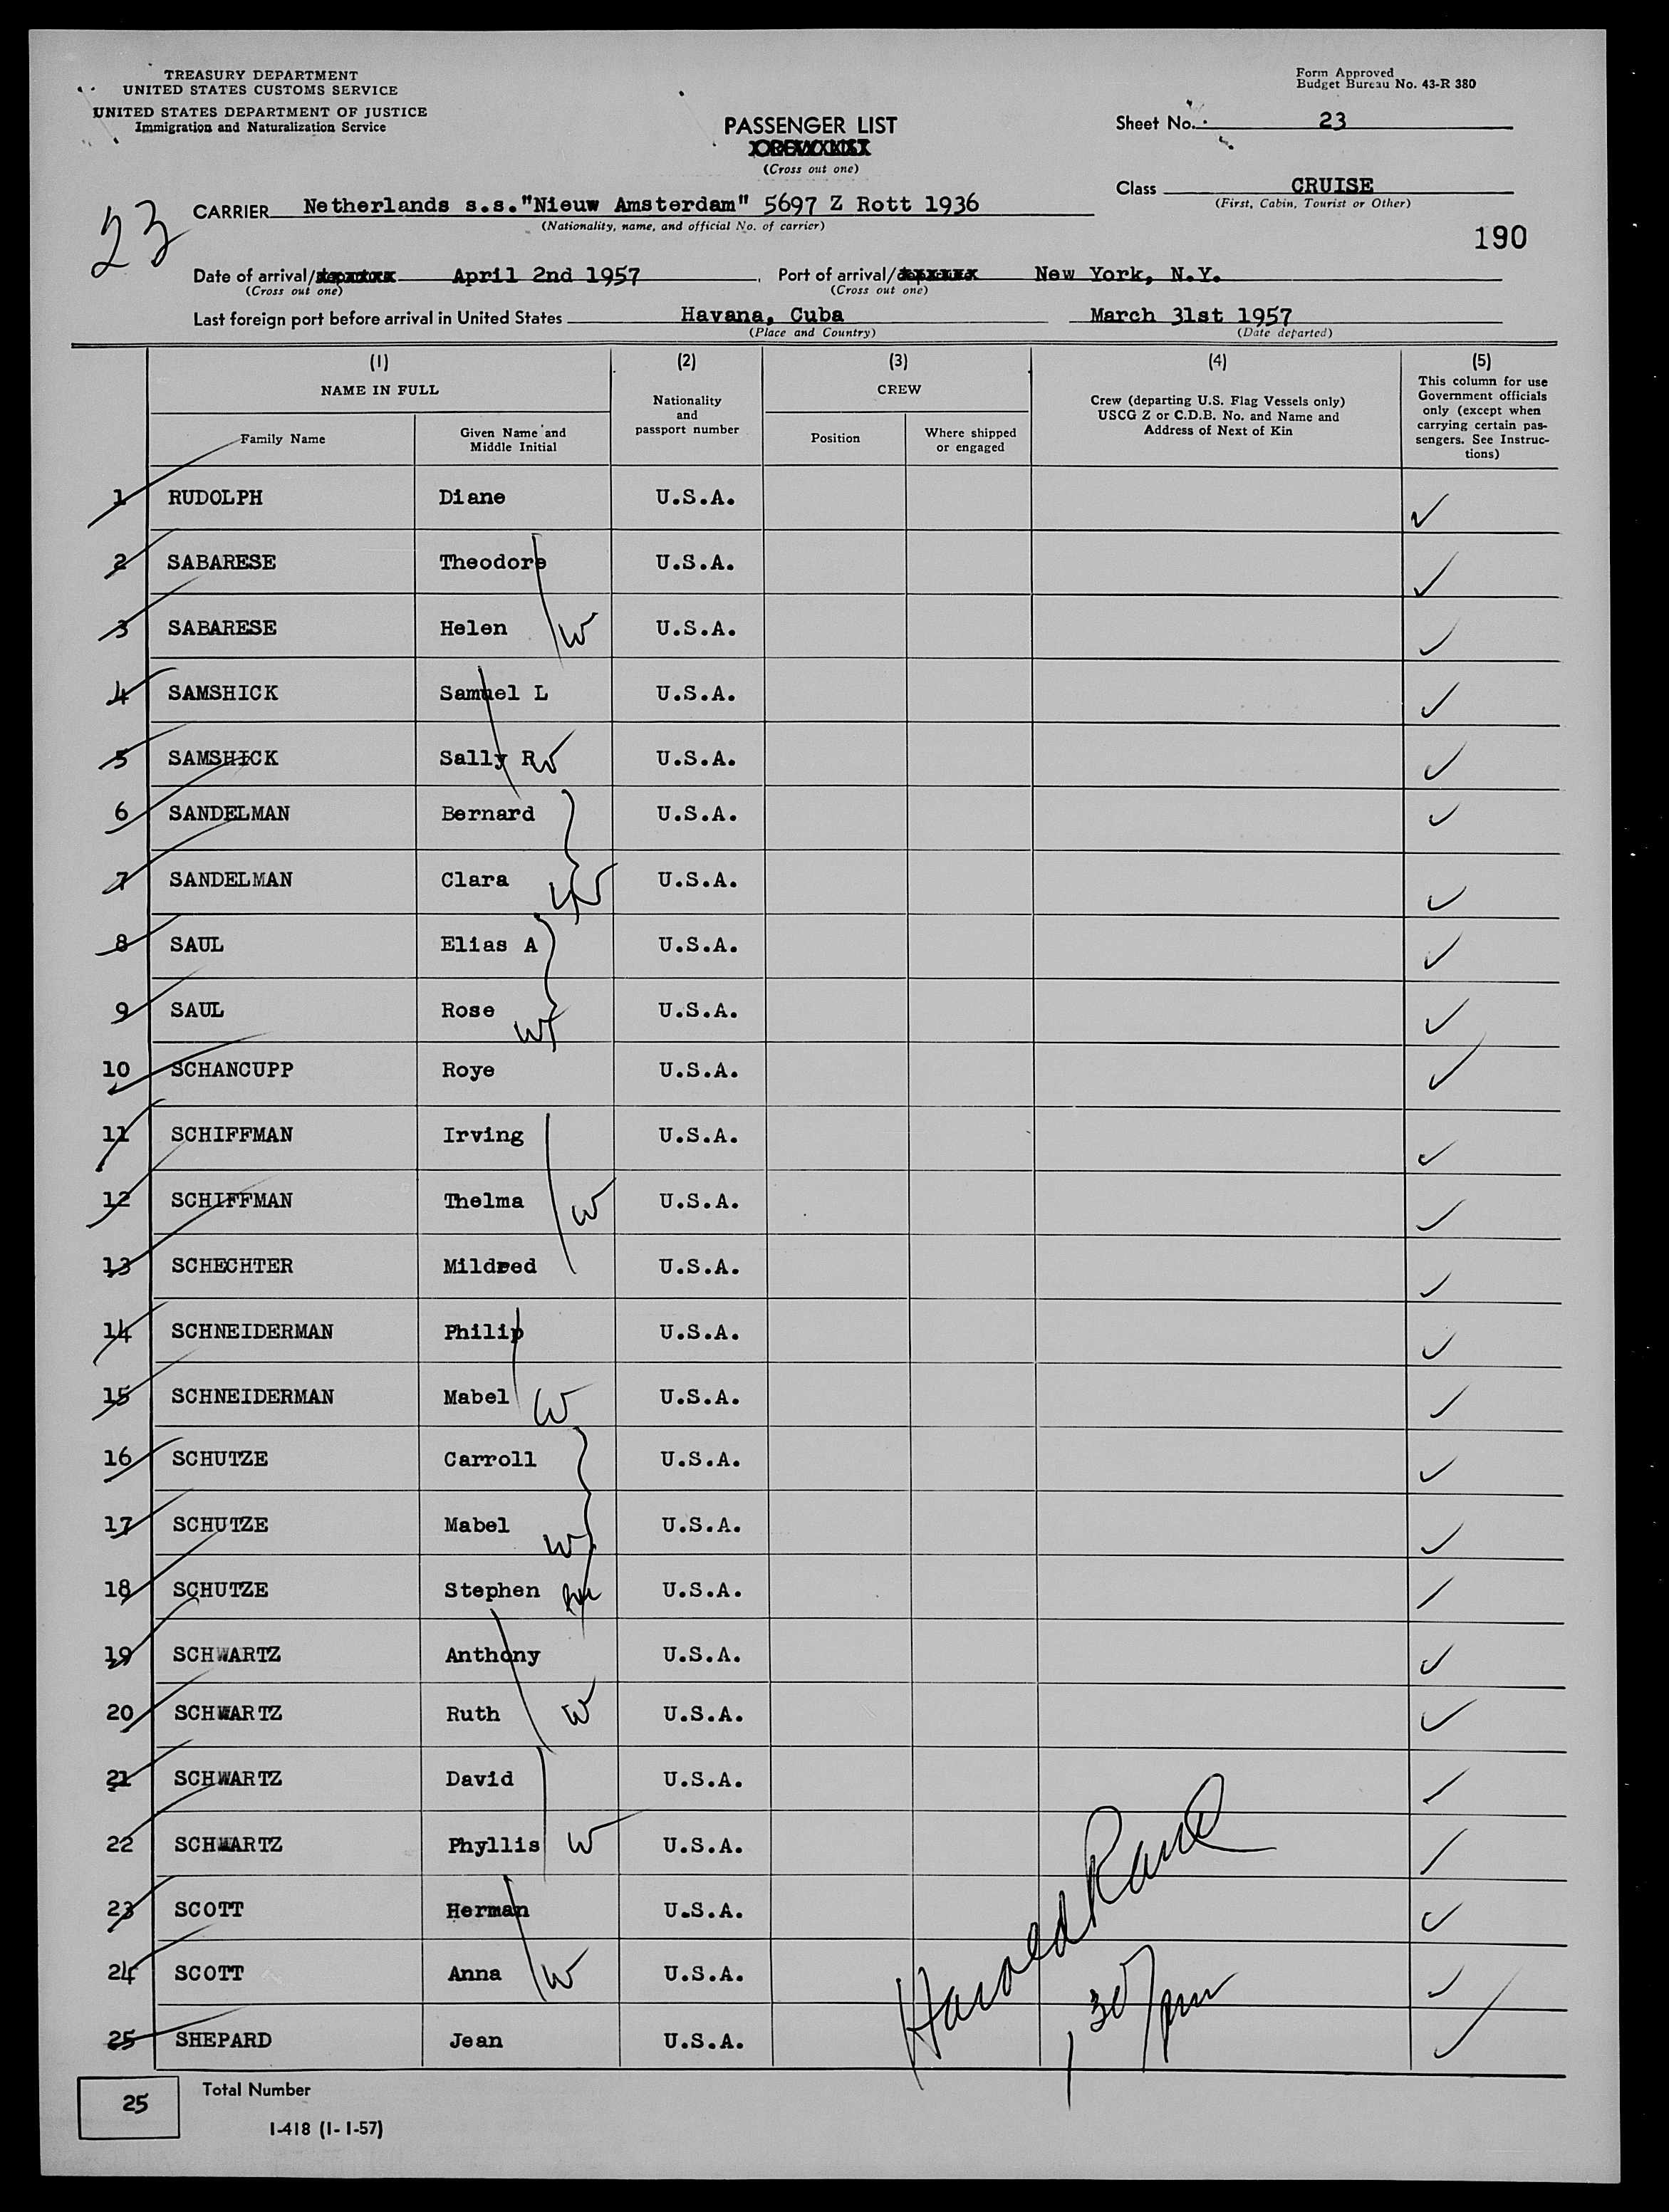 TREASURY DEPARTMENT
UNITED STATES CUSTOMS SERVICE
UNITED STATES DEPARTMENT OF JUSTICE
Immigration and Naturalization Service
Form Approved
Budget Bureau No. 43-R 380
PASSENGER LIST
(Cross out one)
Sheet No. 23
Class CRUISE
(First, Cabin, Tourist or Other)
23
CARRIER Netherlands s.s."Nieuw Amsterdam" 5697 Z Rott 1936
(Nationality, name, and official No. of carrier)
190
Date of arrival/ April 2nd 1957, Port of arrival/ New York, N.Y.
(Cross out one) (Cross out one)
Last foreign port before arrival in United States Havana, Cuba March 31st 1957
(Place and Country) (Date departed)
(1) (2) (3) (4) (5)
NAME IN FULL
Family Name
Given Name and
Middle Initial
Nationality
and
passport number
CREW
Position
Where shipped
or engaged
Crew (departing U.S. Flag Vessels only)
USCG Z or C.D.B. No. and Name and
Address of Next of Kin
This column for use
Government officials
only (except when
carrying certain pas-
sengers. See Instruc-
tions)
1 RUDOLPH Diane U.S.A.
2 SABARESE Theodore U.S.A.
3 SABARESE Helen W U.S.A.
4 SAMSHICK Samuel L U.S.A.
5 SAMSHICK Sally R W U.S.A.
6 SANDELMAN Bernard U.S.A.
7 SANDELMAN Clara W U.S.A.
8 SAUL Elias A U.S.A.
9 SAUL Rose W U.S.A.
10 SCHANCUPP Roye U.S.A.
11 SCHIFFMAN Irving U.S.A.
12 SCHIFFMAN Thelma W U.S.A.
13 SCHECHTER Mildred U.S.A.
14 SCHNEIDERMAN Philip U.S.A.
15 SCHNEIDERMAN Mabel W U.S.A.
16 SCHUTZE Carroll U.S.A.
17 SCHUTZE Mabel W U.S.A.
18 SCHUTZE Stephen U.S.A.
19 SCHWARTZ Anthony U.S.A.
20 SCHWARTZ Ruth W U.S.A.
21 SCHWARTZ David U.S.A.
22 SCHWARTZ Phyllis W U.S.A.
23 SCOTT Herman U.S.A.
24 SCOTT Anna W U.S.A.
25 SHEPARD Jean U.S.A.
Harold
pm
25 Total Number
I-418 (1-1-57)